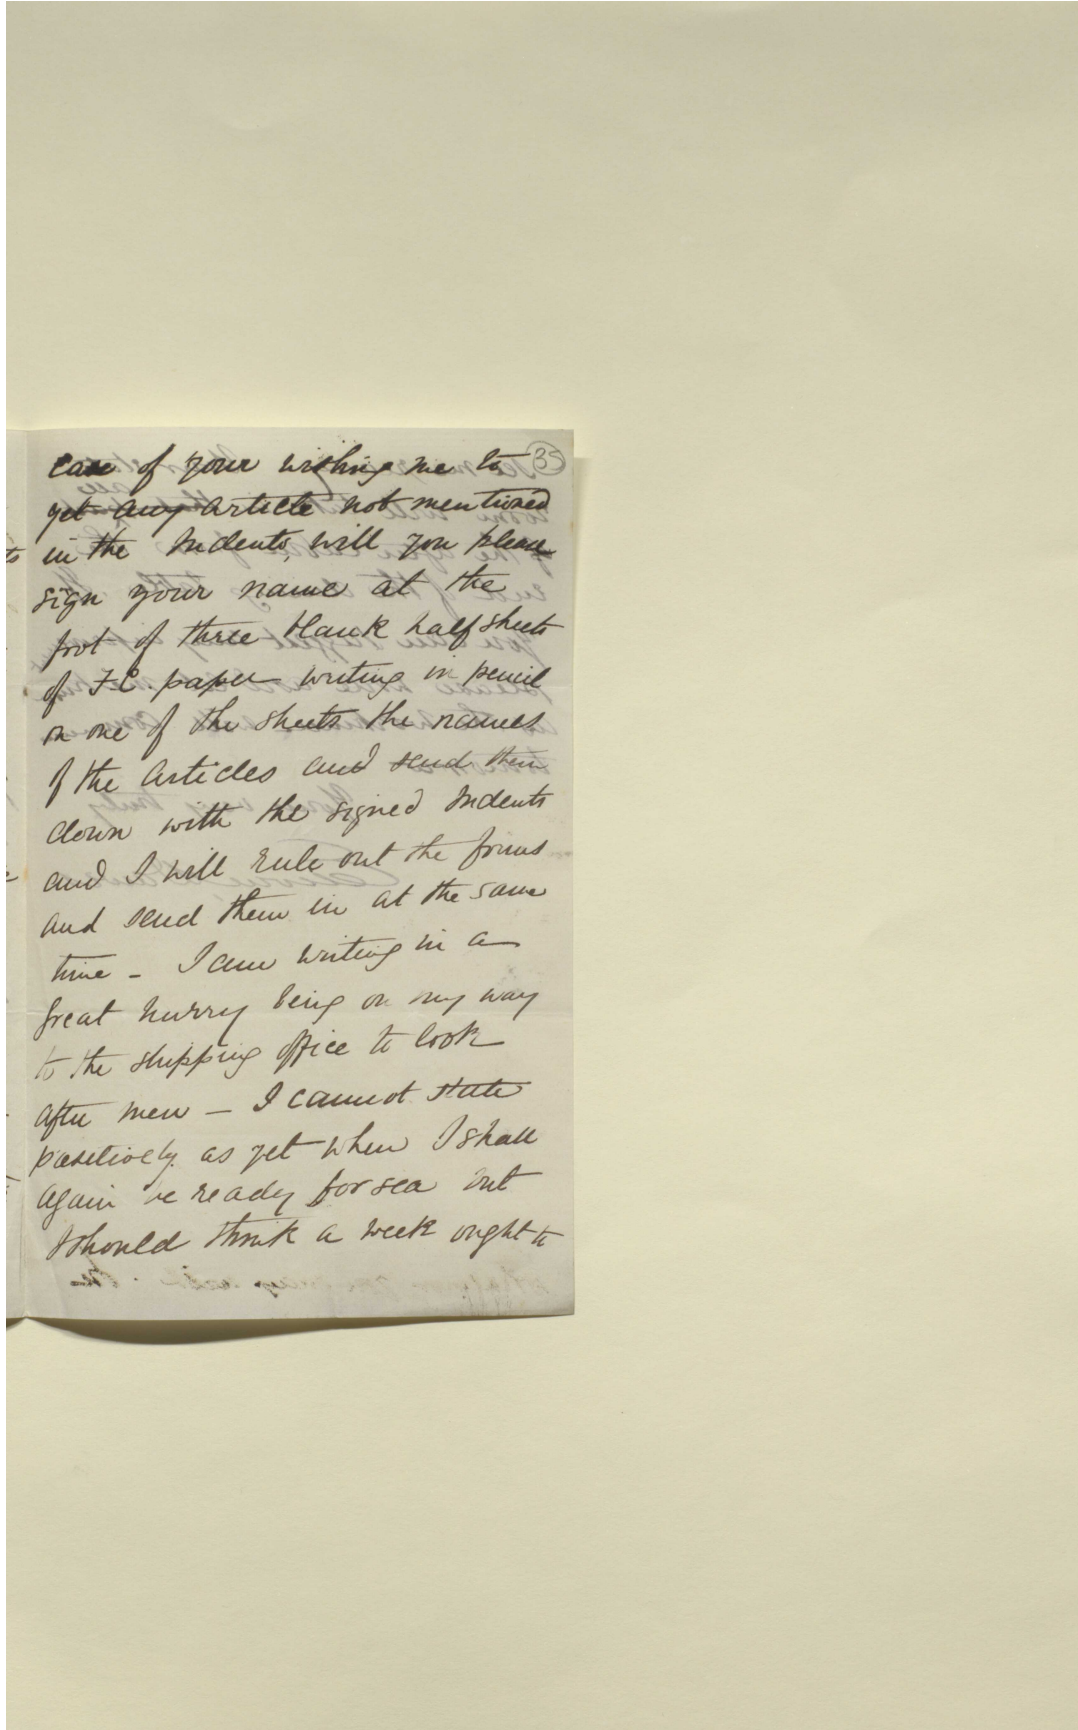 35
case of your wishing me to
get any article not mentioned
in the Indents, will you please
sign your name at the
foot of three blank half sheets
of F.C. paper writing in pencil
on one of the sheets the names
of the articles and send them
down with the signed Indents
and I will rule out the forms
and send them in at the same
time - I am writing in a
great hurry being on my way
to the shipping office to look
after men - I cannot state
positively as yet when I shall
again be ready for sea but
I should think a week ought to